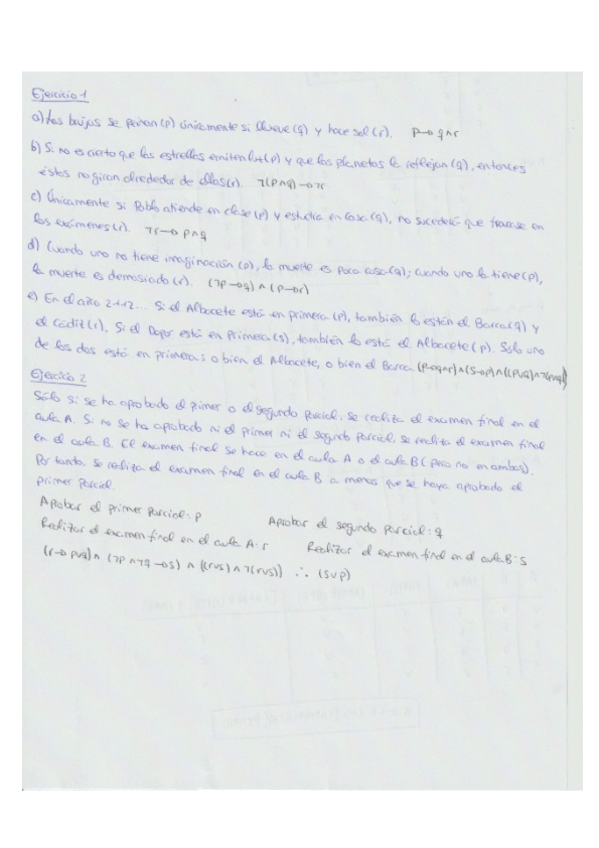 Ejercicio 1
a) Las brujas se peinan (p) únicamente si llueve (q) y hace sol (r). p→q∧r
b) Si no es cierto que las estrellas emiten luz (p) y que los planetas la reflejan (q), entonces
éstos no giran alrededor de ellas (r). ¬(p∧q)→¬r
c) Únicamente si Pablo atiende en clase (p) y estudia en casa (q), no sucederá que fracase en
los exámenes (r). ¬r→p∧q
d) Cuando uno no tiene imaginación (p), la muerte es poca cosa (q); cuando uno la tiene (p),
la muerte es demasiado (r). (¬p→q)∧(p→r)
e) En el año 2112... Si el Albacete está en primera (p), también lo están el Barca (q) y
el Cádiz (r). Si el Depor está en primera (s), también lo está el Albacete (p). Solo uno
de los dos está en primera: o bien el Albacete, o bien el Barca (p→q∧r)∧(s→p)∧((p∨q)∧¬(p∧q))
Ejercicio 2
Sólo si se ha aprobado el primer o el segundo parcial, se realiza el examen final en el
aula A. Si no se ha aprobado ni el primer ni el segundo parcial, se realiza el examen final
en el aula B. El examen final se hace en el aula A o el aula B (pero no en ambas).
Por tanto, se realiza el examen final en el aula B a menos que se haya aprobado el
primer parcial.
Aprobar el primer parcial: p Aprobar el segundo parcial: q
Realizar el examen final en el aula A: r Realizar el examen final en el aula B: s
(r→p∨q)∧(¬p∧¬q→s)∧((r∨s)∧¬(r∨s)) ∴ (s∨p)